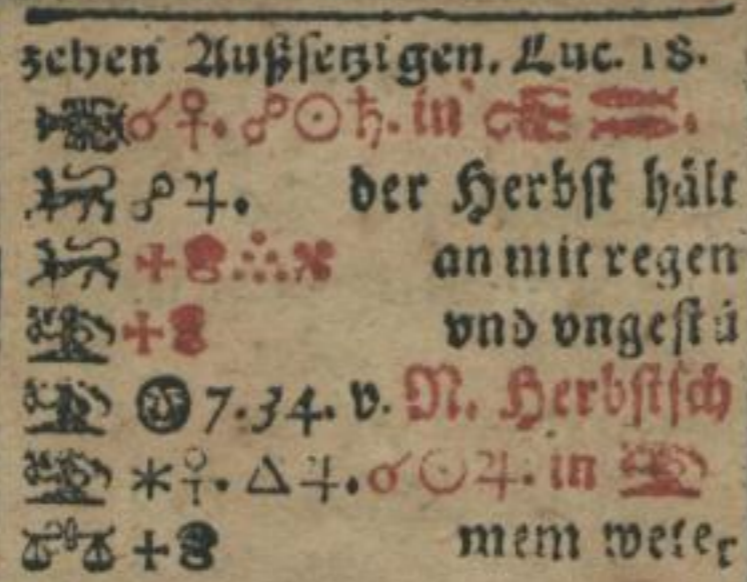 zehen Außsetzigen. Luc. 18.
♋☌♀. ☍☉♄. in ♑ ♓.
♌☍♃. der Herbst hält
♌✚ an mit regen
♍✚ vnd vngestü
♍ 7.34. v. N. Herbstsch
♍⚹♀. △♃. ☌☉♃. in ♍
♎✚ mem wete